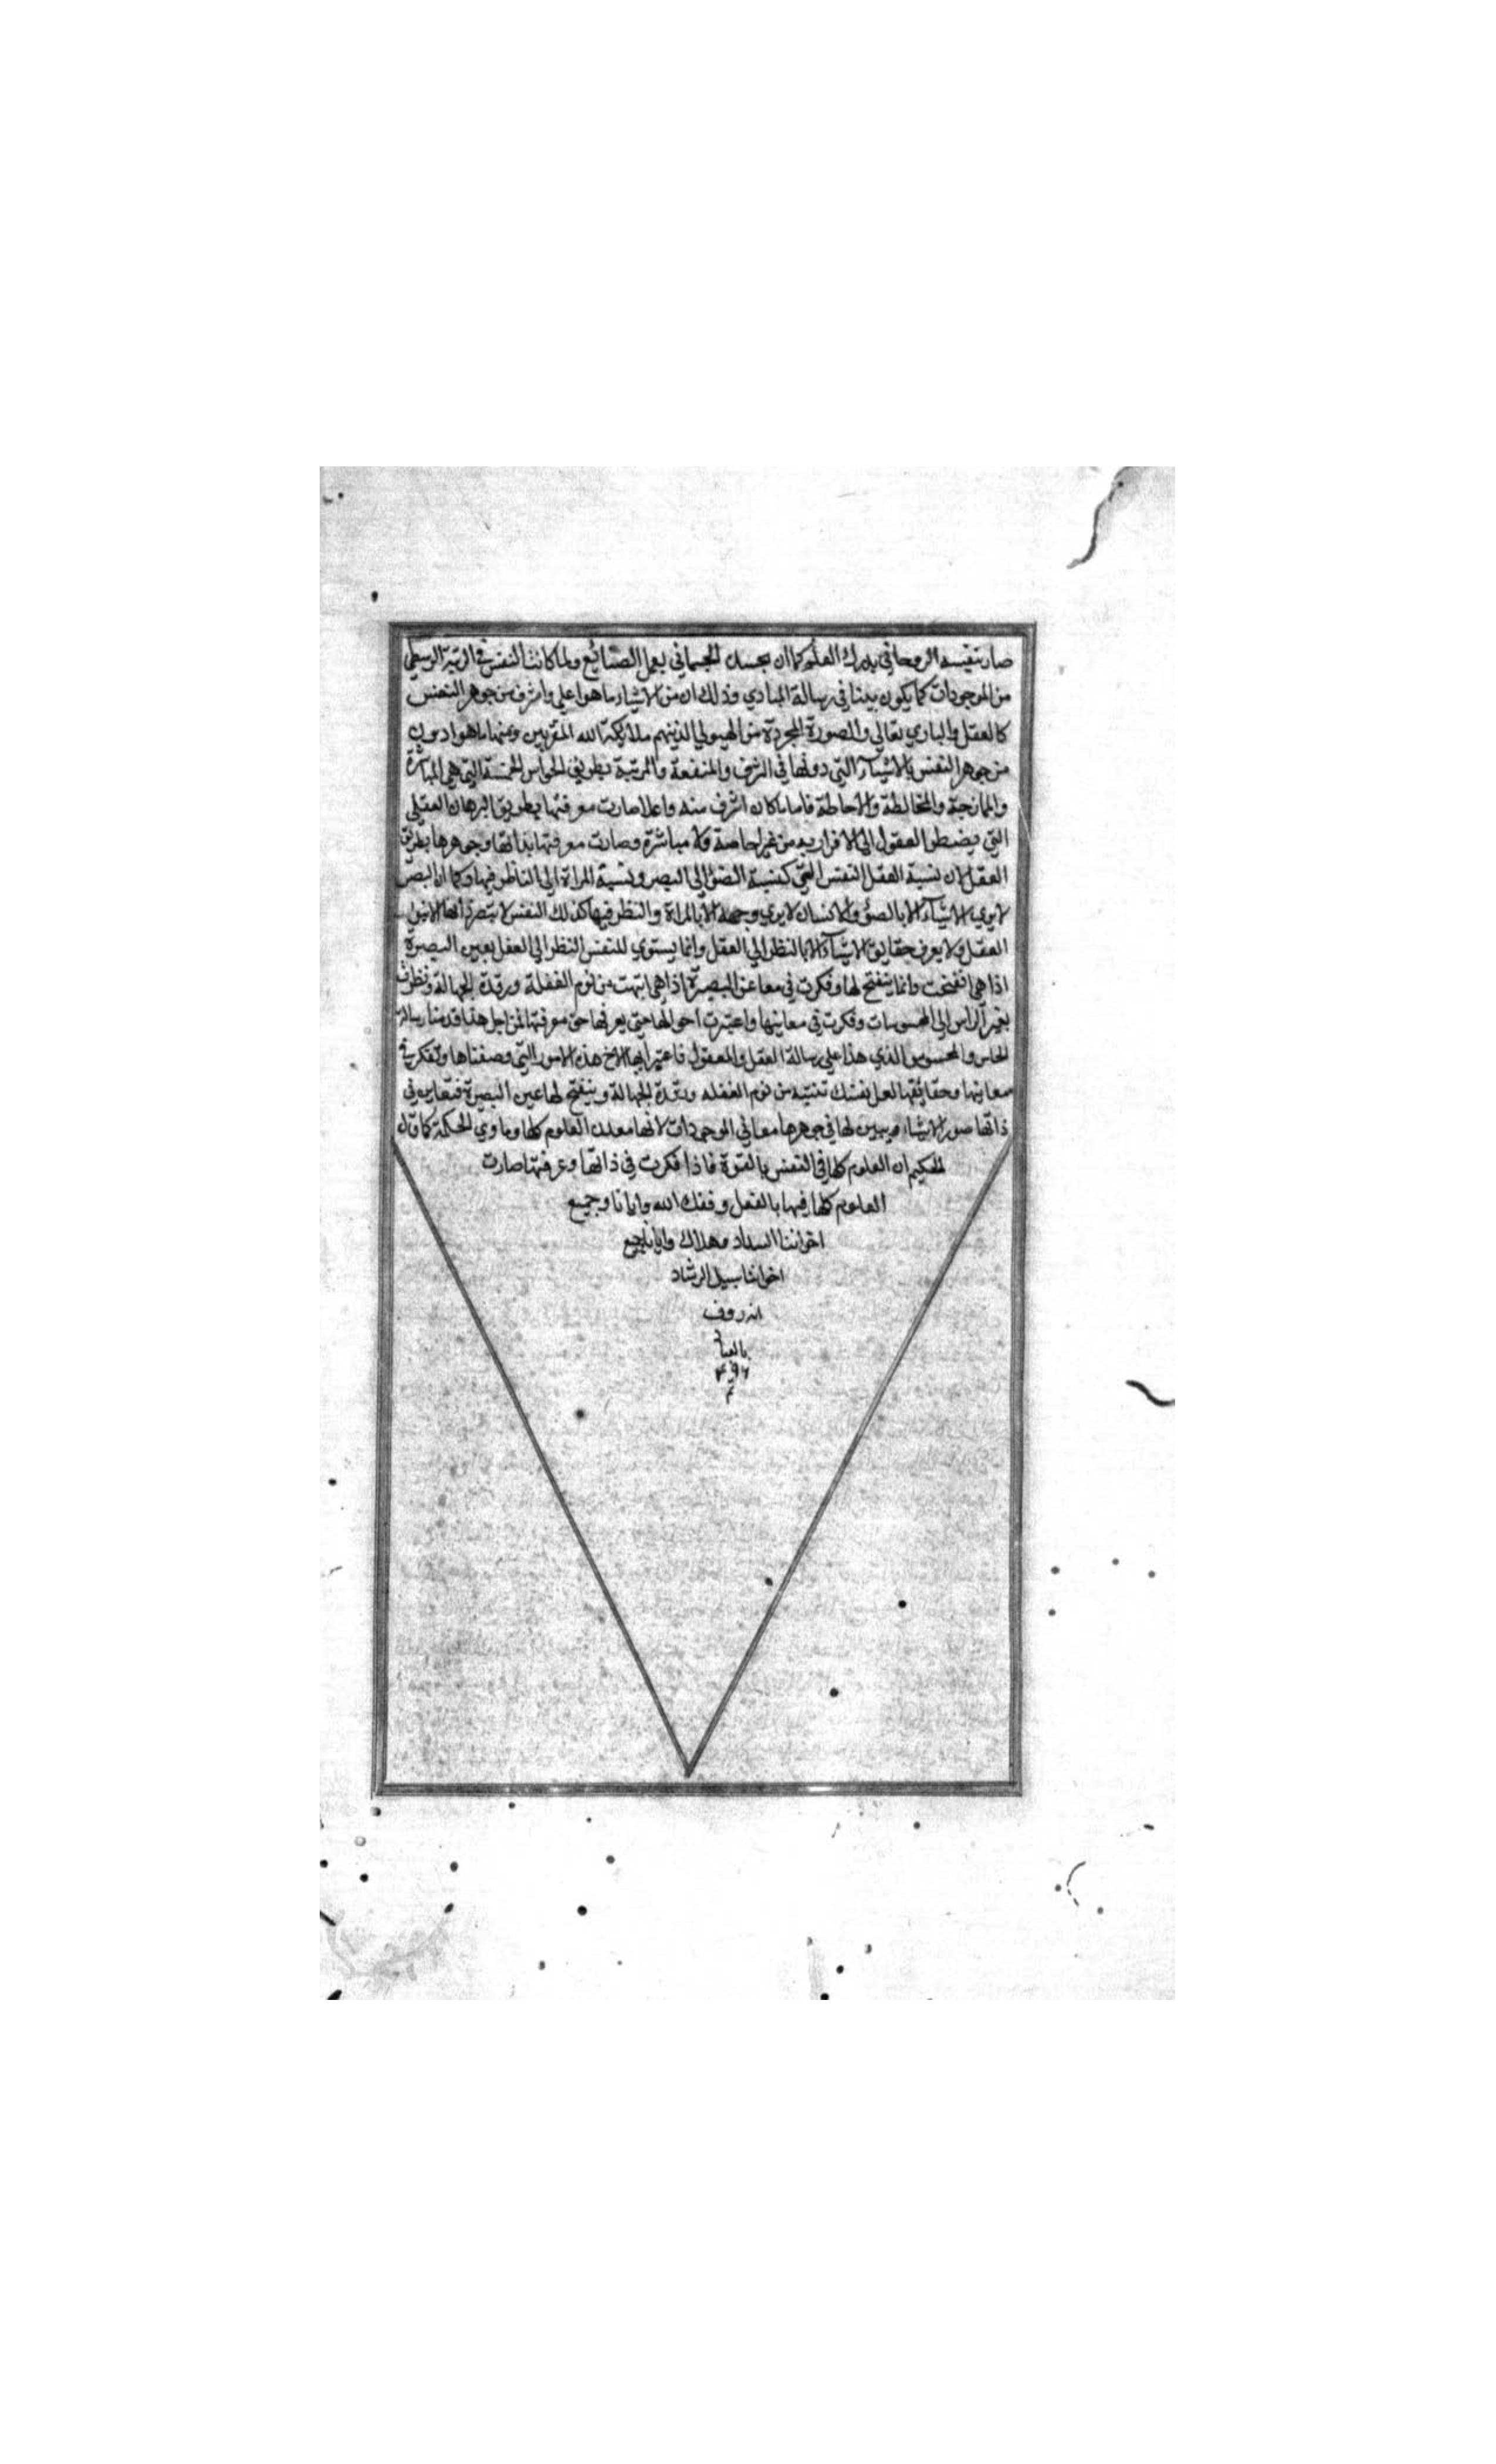 صار بنفسه الروحاني يدرك العلم كما ان بجسده الجسماني يعمل الصنائع ولما كانت النفس في الرتبة الوسطي
من الموجودات كما يكون بينا في رسالة المبادي وذلك ان من الاشياء ما هو اعلي واشرف من جوهر النفس
كالعقل والباري تعالي والصورة المجردة من الهيولي الذينهم ملايكة الله المقربين ومنها ما هو ادون
من جوهر النفس بالاشيآء التي دونها في الشرف والمنفعة والمرتبة بطريق الحواس الخمسة التي هي المباشرة
والممازجة والمخالطة والاحاطة فاما ما كان اشرف منه واعلا صارت معرفتها بطريق البرهان العقلي
التي يضطر العقول الي الاقرار به من غير احاصة ولا مباشرة وصارت معرفتها بذاتها وجوهرها بطريق
العقل لان نسبة العقل النفس التي كنسبة الضؤ الي البصر ونسبة المراة الي الناظر فيها وكما ان البصر
لا يري الاشيآء الا بالضؤ والانسان لا يري وجهه الا بالمراة والنظر فيها كذلك النفس لا يتصر ذاتها الا بنور
العقل ولا يعرف حقايق الاشيآء الا بالنظر الي العقل وانما يستوي للنفس النظر الي العقل بعين البصيرة
اذا هي انفتحت وانما ينفتح لها وفكرت في معا عن البصيرة اذا هي انتبهت من نوم الغفلة ورقدة الجهالة ونظرت
بعين الراس الي المحسوسات وفكرت في معانيها واعتبرت احوالها حتي يعرفها حق معرفتها لمن اجل هذا قدمنا رسالة
الحاس والمحسوس الذي هذا علي رسالة العقل والمعقول فاعتبر ايها الاخ هذه الامور التي وصفناها وتفكر في
معانيها وحقائقها لعل نفسك تنتبه من نوم الغفله ورقدة الجهالة وينفتح لها عين البصيرة فتعاين في
ذاتها صور الاشياء ويبين لها في جوهرها معاني الموجودات لانها معدن العلوم كلها وماوي الحكمة كما قال
الحكيم ان العلوم كلها في النفس بالقوة فاذا فكرت في ذاتها وعرفتها صارت
العلوم كلها فيها بالفعل وفقك الله وايانا وجميع
اخواننا السداد وهداك وايانا جميع
اخواننا سبيل الرشاد
انه رووف
بالعباد
م